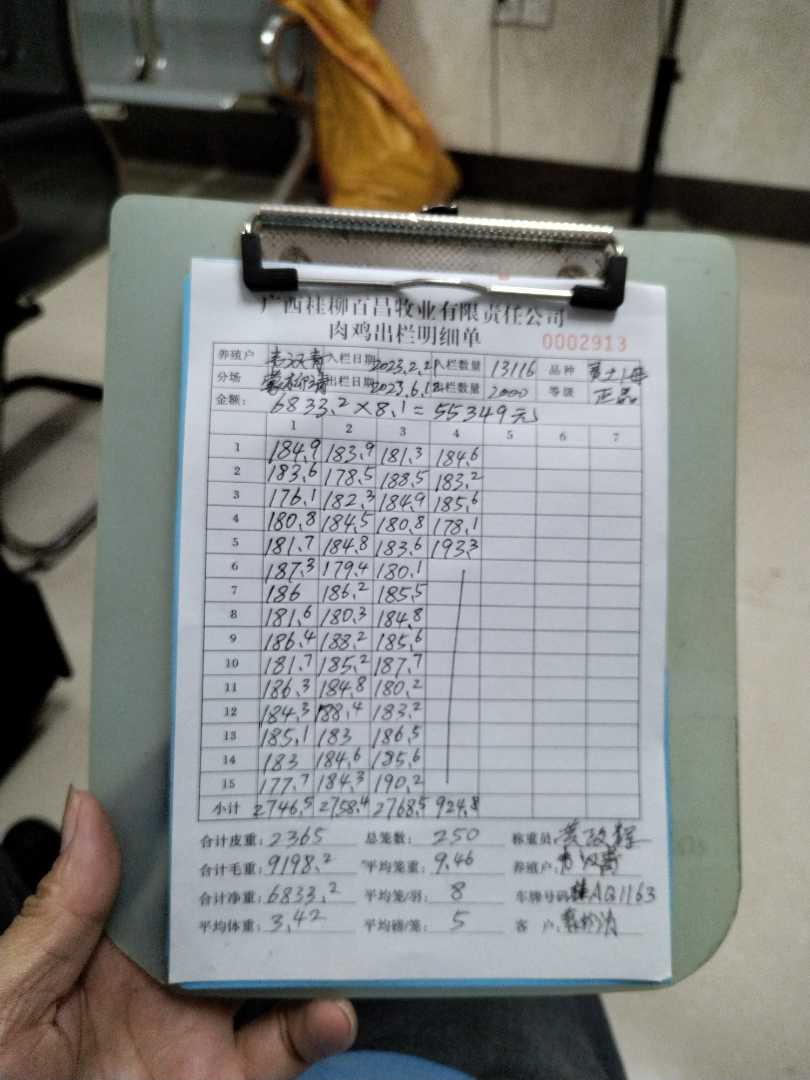 广西桂柳百昌牧业有限责任公司
肉鸡出栏明细单
0002913
养殖户 入栏日期 2023.2.21 入栏数量 13116 品种
分场 出栏日期 2023.6.18 出栏数量 2000 等级 正品
金额: 6833.2×8.1=55349元
1 2 3 4 5 6 7
1 184.9 183.9 181.3 184.6
2 183.6 178.5 188.5 183.2
3 176.1 182.3 184.9 185.6
4 180.8 184.5 180.8 178.1
5 181.7 184.8 183.6 193.3
6 187.3 179.4 180.1
7 186 186.2 185.5
8 181.6 180.3 184.8
9 186.4 188.2 185.6
10 181.7 185.2 187.7
11 186.3 184.8 180.2
12 184.3 188.4 183.2
13 185.1 183 186.5
14 183 184.6 185.6
15 177.7 184.3 190.2
小计 2746.5 2758.4 2768.5 924.8
合计皮重: 2365 总笼数: 250 称重员:
合计毛重: 9198.2 平均笼重: 9.46 养殖户:
合计净重: 6833.2 平均笼/羽: 8 车牌号码: 桂AQ1163
平均体重: 3.42 平均磅/笼: 5 客 户: